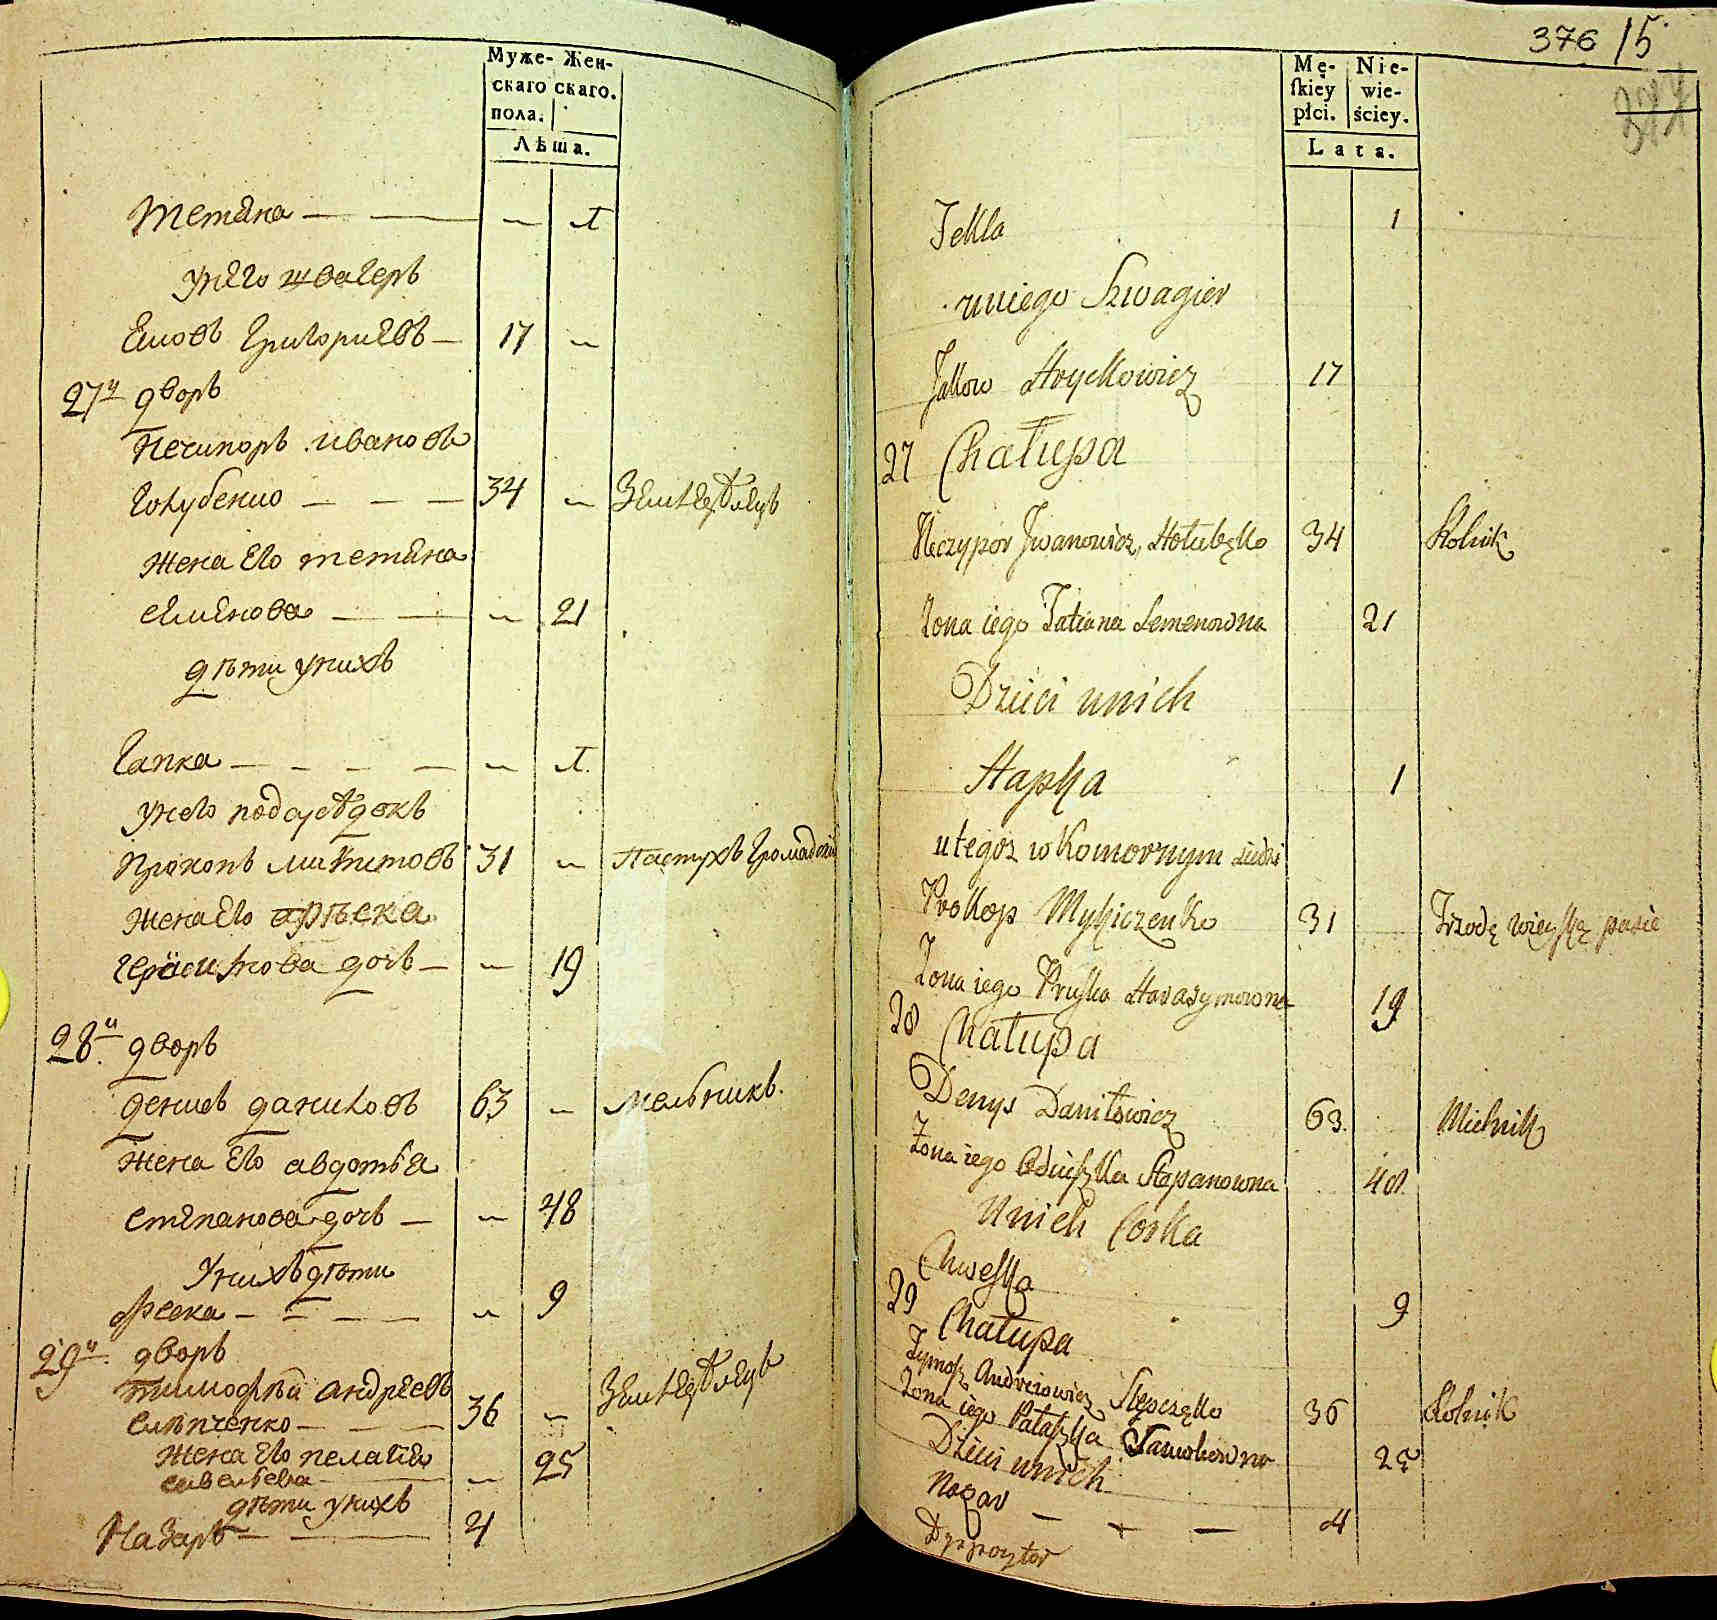 Муже- Жен-
скаго скаго.
пола.
Лѣта.
тетяна — — 1
унего швагеръ
Яковъ григориевъ — 17
27й дворъ
Нечипоръ ивановъ
голубенко — — — 34 земледѣлецъ
жена его тетяна
семенова — — 21
дѣти унихъ
гапка — — — — 1
унего подсусѣдокъ
прокопъ микитовъ 31 пастухъ громадскій
жена его
герасимова дочь — 19
28й дворъ
денисъ даниловъ 63 мельникъ
жена его авдотья
степанова дочь — 48
унихъ дѣти
феска — — — — 9
29й дворъ
тимофѣй андреевъ
слѣпченко — — — 36 земледѣлецъ
жена его пелагея
савельева — 25
дѣти унихъ
Назаръ — — 4
376 15
Mę- Nie-
ſkiey wie-
płci. ściey.
Lata.
Tekla 1
uniego Szwagier
Jakow Hryckowicz 17
27 Chałupa
Neczypor Iwanowicz, Hołubęko 34 Rolnik
Żona iego Tatiana Semenowna 21
Dzieci unich
Hapka 1
utegoz w Komornym
Prokop Mykiczenko 31 Trzodę wieyską pasie
Żona iego Pryska Harasymowna 19
28 Chałupa
Denys Daniłowicz 63. Mielnik
Żona iego Stepanowna 48.
Unich Corka
Chweska 9
29 Chałupa
Tymosz Andreiowicz Slepczęko 36 Rolnik
Żona iego Pałaszka 25
Dzieci unich
Nazar — — — 4